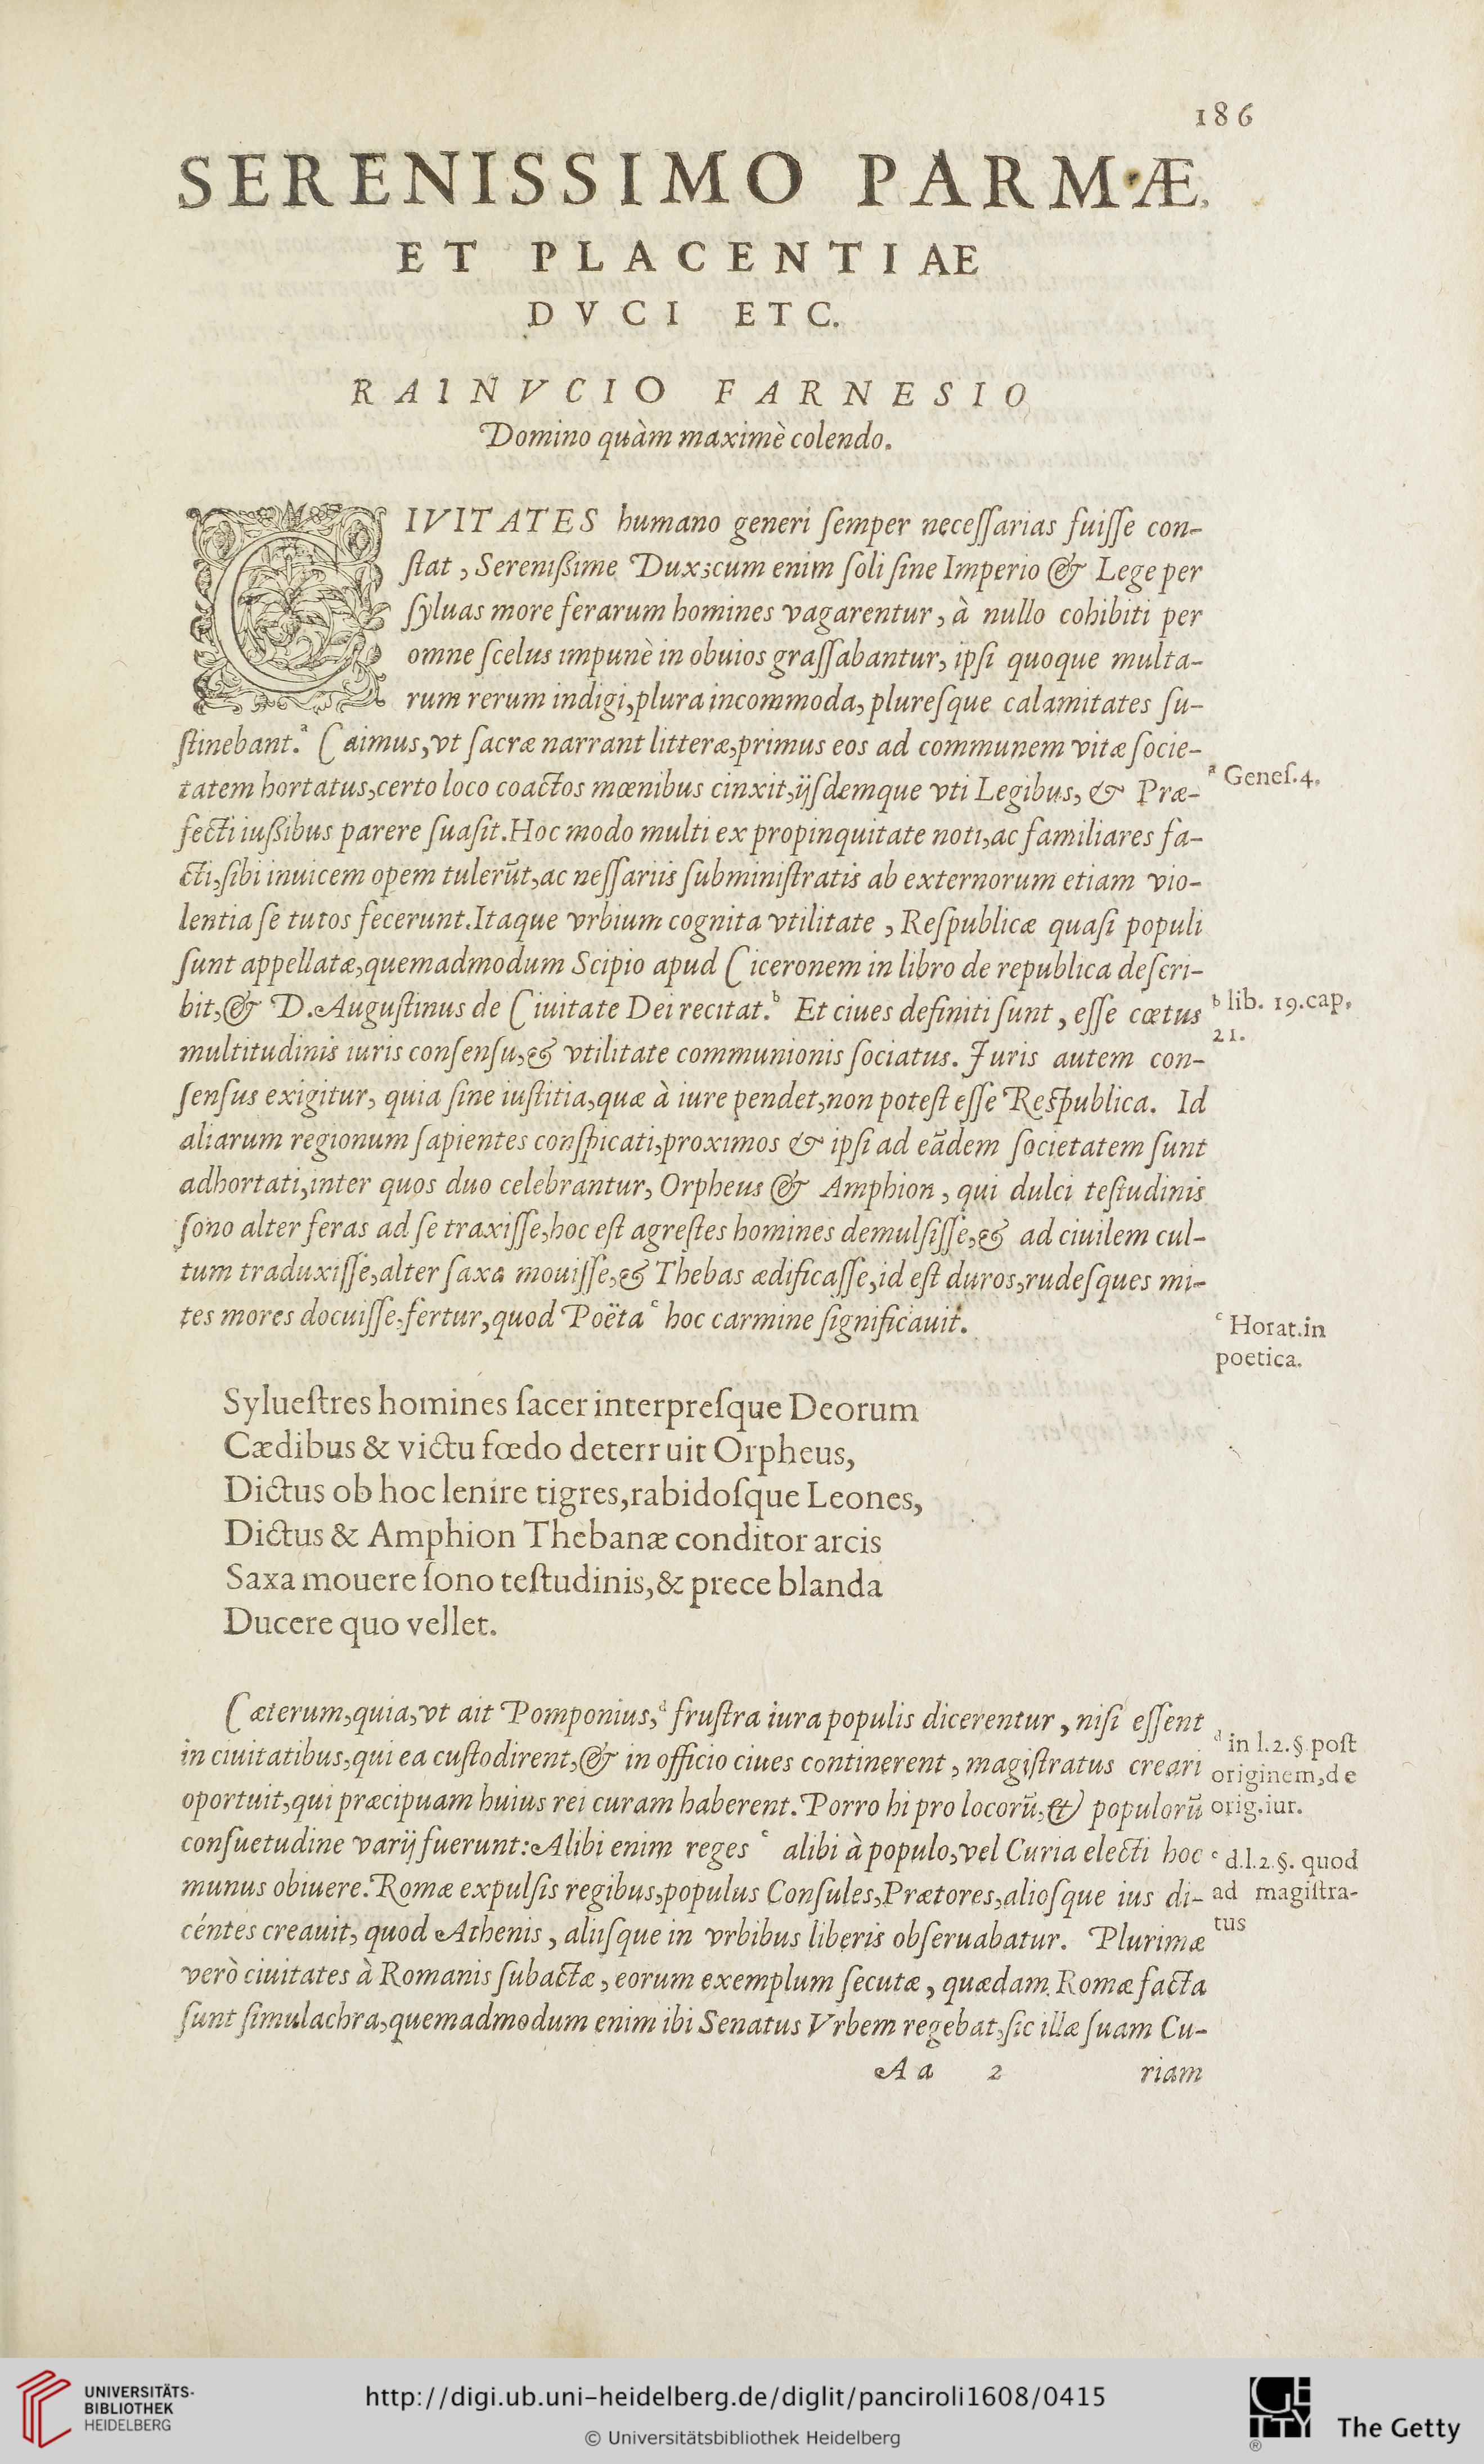 186
SERENISSIMO PARMÆ,
ET PLACENTIAE
DVCI ETC.
RAINVCIO FARNESIO
Domino quàm maximè colendo.
CIVITATES humano generi ſemper neceſſarias fuiſſe con-
ſtat, Sereniſſime Dux; cum enim ſoli ſine Imperio & Lege per
ſyluas more ferarum homines vagarentur, à nullo cohibiti per
omne ſcelus impunè in obuios graſſabantur, ipſi quoque multa-
rum rerum indigi, plura incommoda, pluresque calamitates ſu-
ſtinebant.ᵃ Caimus, vt ſacræ narrant litteræ, primus eos ad communem vitæ ſocie-
tatem hortatus, certo loco coactos mœnibus cinxit, ijſdemque vti Legibus, & Præ-
ᵃ Geneſ.4.
fecti iuſſibus parere ſuaſit. Hoc modo multi ex propinquitate noti, ac familiares fa-
cti, ſibi inuicem opem tulerūt, ac neſſariis ſubminiſtratis ab externorum etiam vio-
lentia ſe tutos fecerunt. Itaque vrbium cognita vtilitate, Reſpublicæ quaſi populi
ſunt appellatæ, quemadmodum Scipio apud Ciceronem in libro de republica deſcri-
bit, & D. Auguſtinus de Ciuitate Dei recitat.ᵇ Et ciues definiti ſunt, eſſe cœtus
ᵇ lib. 19. cap.
21.
multitudinis iuris conſenſu, & vtilitate communionis ſociatus. Iuris autem con-
ſenſus exigitur, quia ſine iuſtitia, quæ à iure pendet, non poteſt eſſe Reſpublica. Id
aliarum regionum ſapientes conſpicati, proximos & ipſi ad eādem ſocietatem ſunt
adhortati, inter quos duo celebrantur, Orpheus & Amphion, qui dulci teſtudinis
ſono alter feras ad ſe traxiſſe, hoc eſt agreſtes homines demulſiſſe, & ad ciuilem cul-
tum traduxiſſe, alter ſaxa mouiſſe, & Thebas ædificaſſe, id eſt duros, rudeſques mi-
tes mores docuiſſe fertur, quod Poëta ᶜ hoc carmine ſignificauit.
ᶜ Horat. in
poetica.
Sylueſtres homines ſacer interpreſque Deorum
Cædibus & victu fœdo deterruit Orpheus,
Dictus ob hoc lenire tigres, rabidoſque Leones,
Dictus & Amphion Thebanæ conditor arcis
Saxa mouere ſono teſtudinis, & prece blanda
Ducere quo vellet.
Cæterum, quia, vt ait Pomponius,ᵈ fruſtra iura populis dicerentur, niſi eſſent
in ciuitatibus, qui ea cuſtodirent, & in officio ciues continerent, magiſtratus creari
oportuit, qui præcipuam huius rei curam haberent. Porro hi pro locorū, & populorū
ᵈ in l.2.§. poſt
originem, de
orig. iur.
conſuetudine varij fuerunt: Alibi enim reges ᵉ alibi à populo, vel Curia electi hoc
munus obiuere. Romæ expulſis regibus, populus Conſules, Prætores, alioſque ius di-
centes creauit, quod Athenis, aliiſque in vrbibus liberis obſeruabatur. Plurimæ
ᵉ d.l.2.§. quod
ad magiſtra-
tus
verò ciuitates à Romanis ſubactæ, eorum exemplum ſecutæ, quædam Romæ facta
ſunt ſimulachra, quemadmodum enim ibi Senatus Vrbem regebat, ſic illæ ſuam Cu-
Aa 2 riam
UNIVERSITÄTS-
BIBLIOTHEK
HEIDELBERG
http://digi.ub.uni-heidelberg.de/diglit/panciroli1608/0415
© Universitätsbibliothek Heidelberg
GETTY
®
The Getty